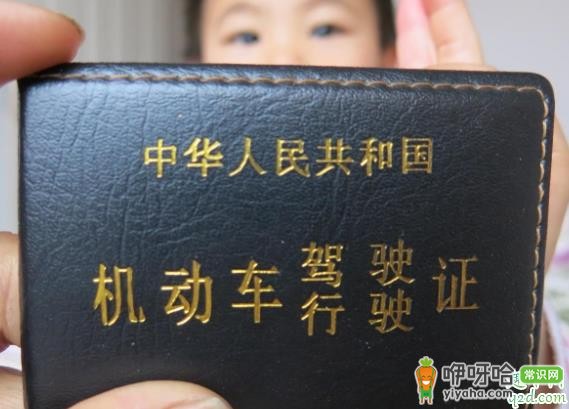 中华人民共和国
机动车驾驶证
行驶
咿呀哈 常识网
yiyaha.com